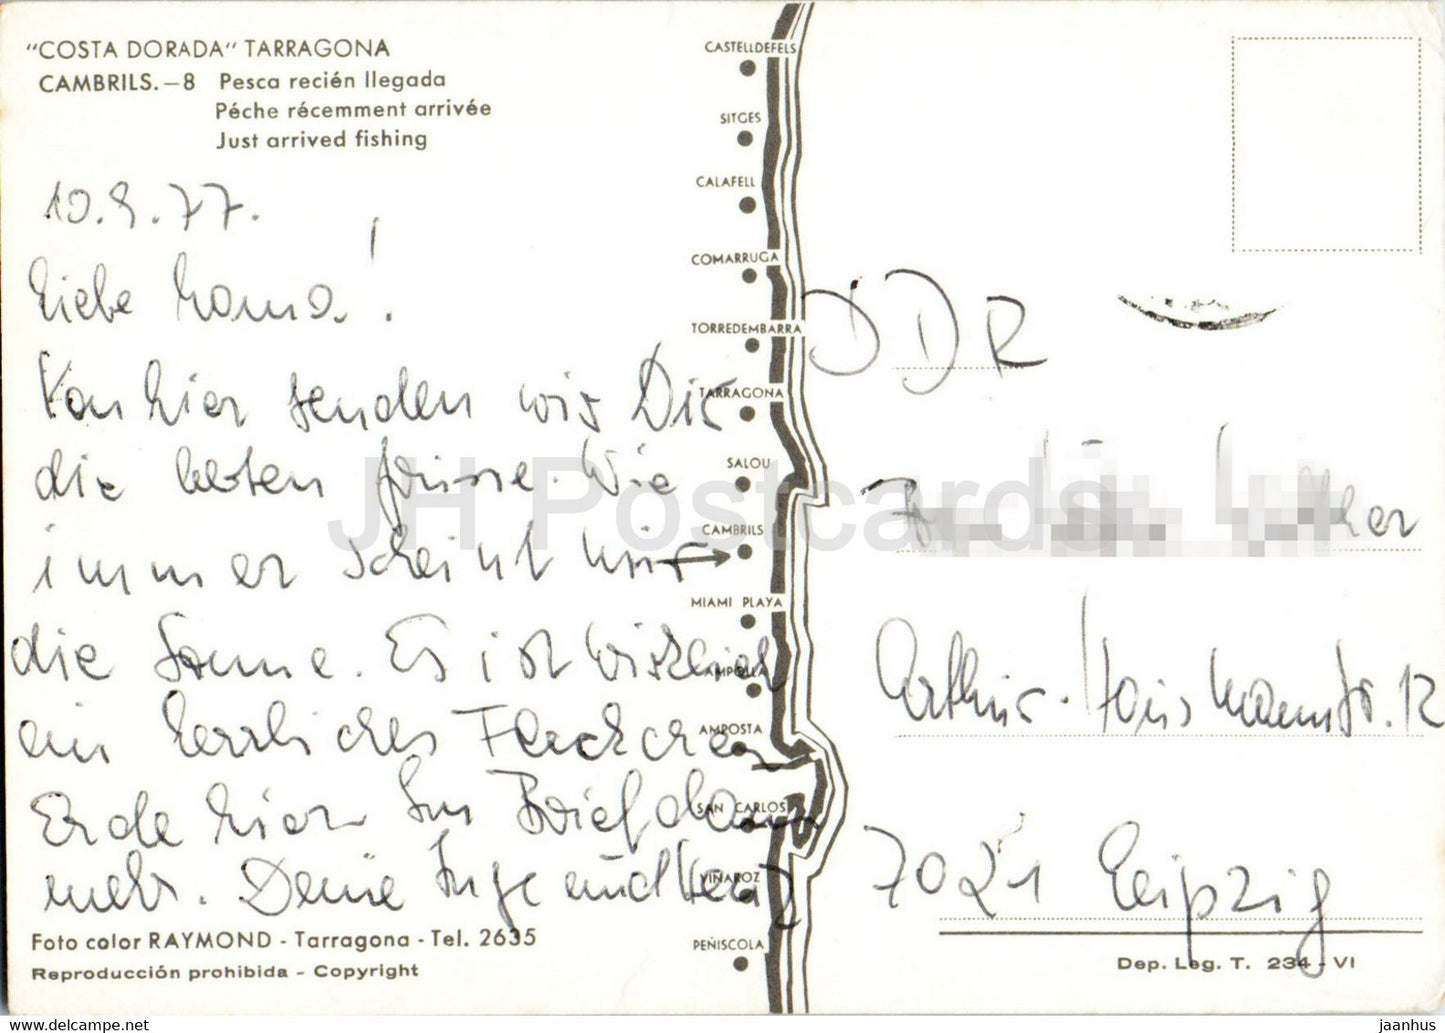 "COSTA DORADA" TARRAGONA
CAMBRILS.—8 Pesca recién llegada
Péche récemment arrivée
Just arrived fishing
10.9.77.
Liebe Mama!
Von hier senden wir Dir
die besten Grüsse. Wie
immer scheint hier
die Sonne. Es ist wirklich
ein herrliches Fleckchen
Erde hier. Im Brief dann
mehr. Deine Inge und
Foto color RAYMOND - Tarragona - Tel. 2635
Reproducción prohibida - Copyright
CASTELLDEFELS
SITGES
CALAFELL
COMARRUGA
TORREDEMBARRA
TARRAGONA
SALOU
CAMBRILS
MIAMI PLAYA
AMPOLLA
AMPOSTA
SAN CARLOS
VINAROZ
PEÑISCOLA
DDR
Arthur-Hausmannstr. 12
7021 Leipzig
Dep. Leg. T. 234 - VI
JH Postcards
https://www.jhpostcards.com
jaanhus